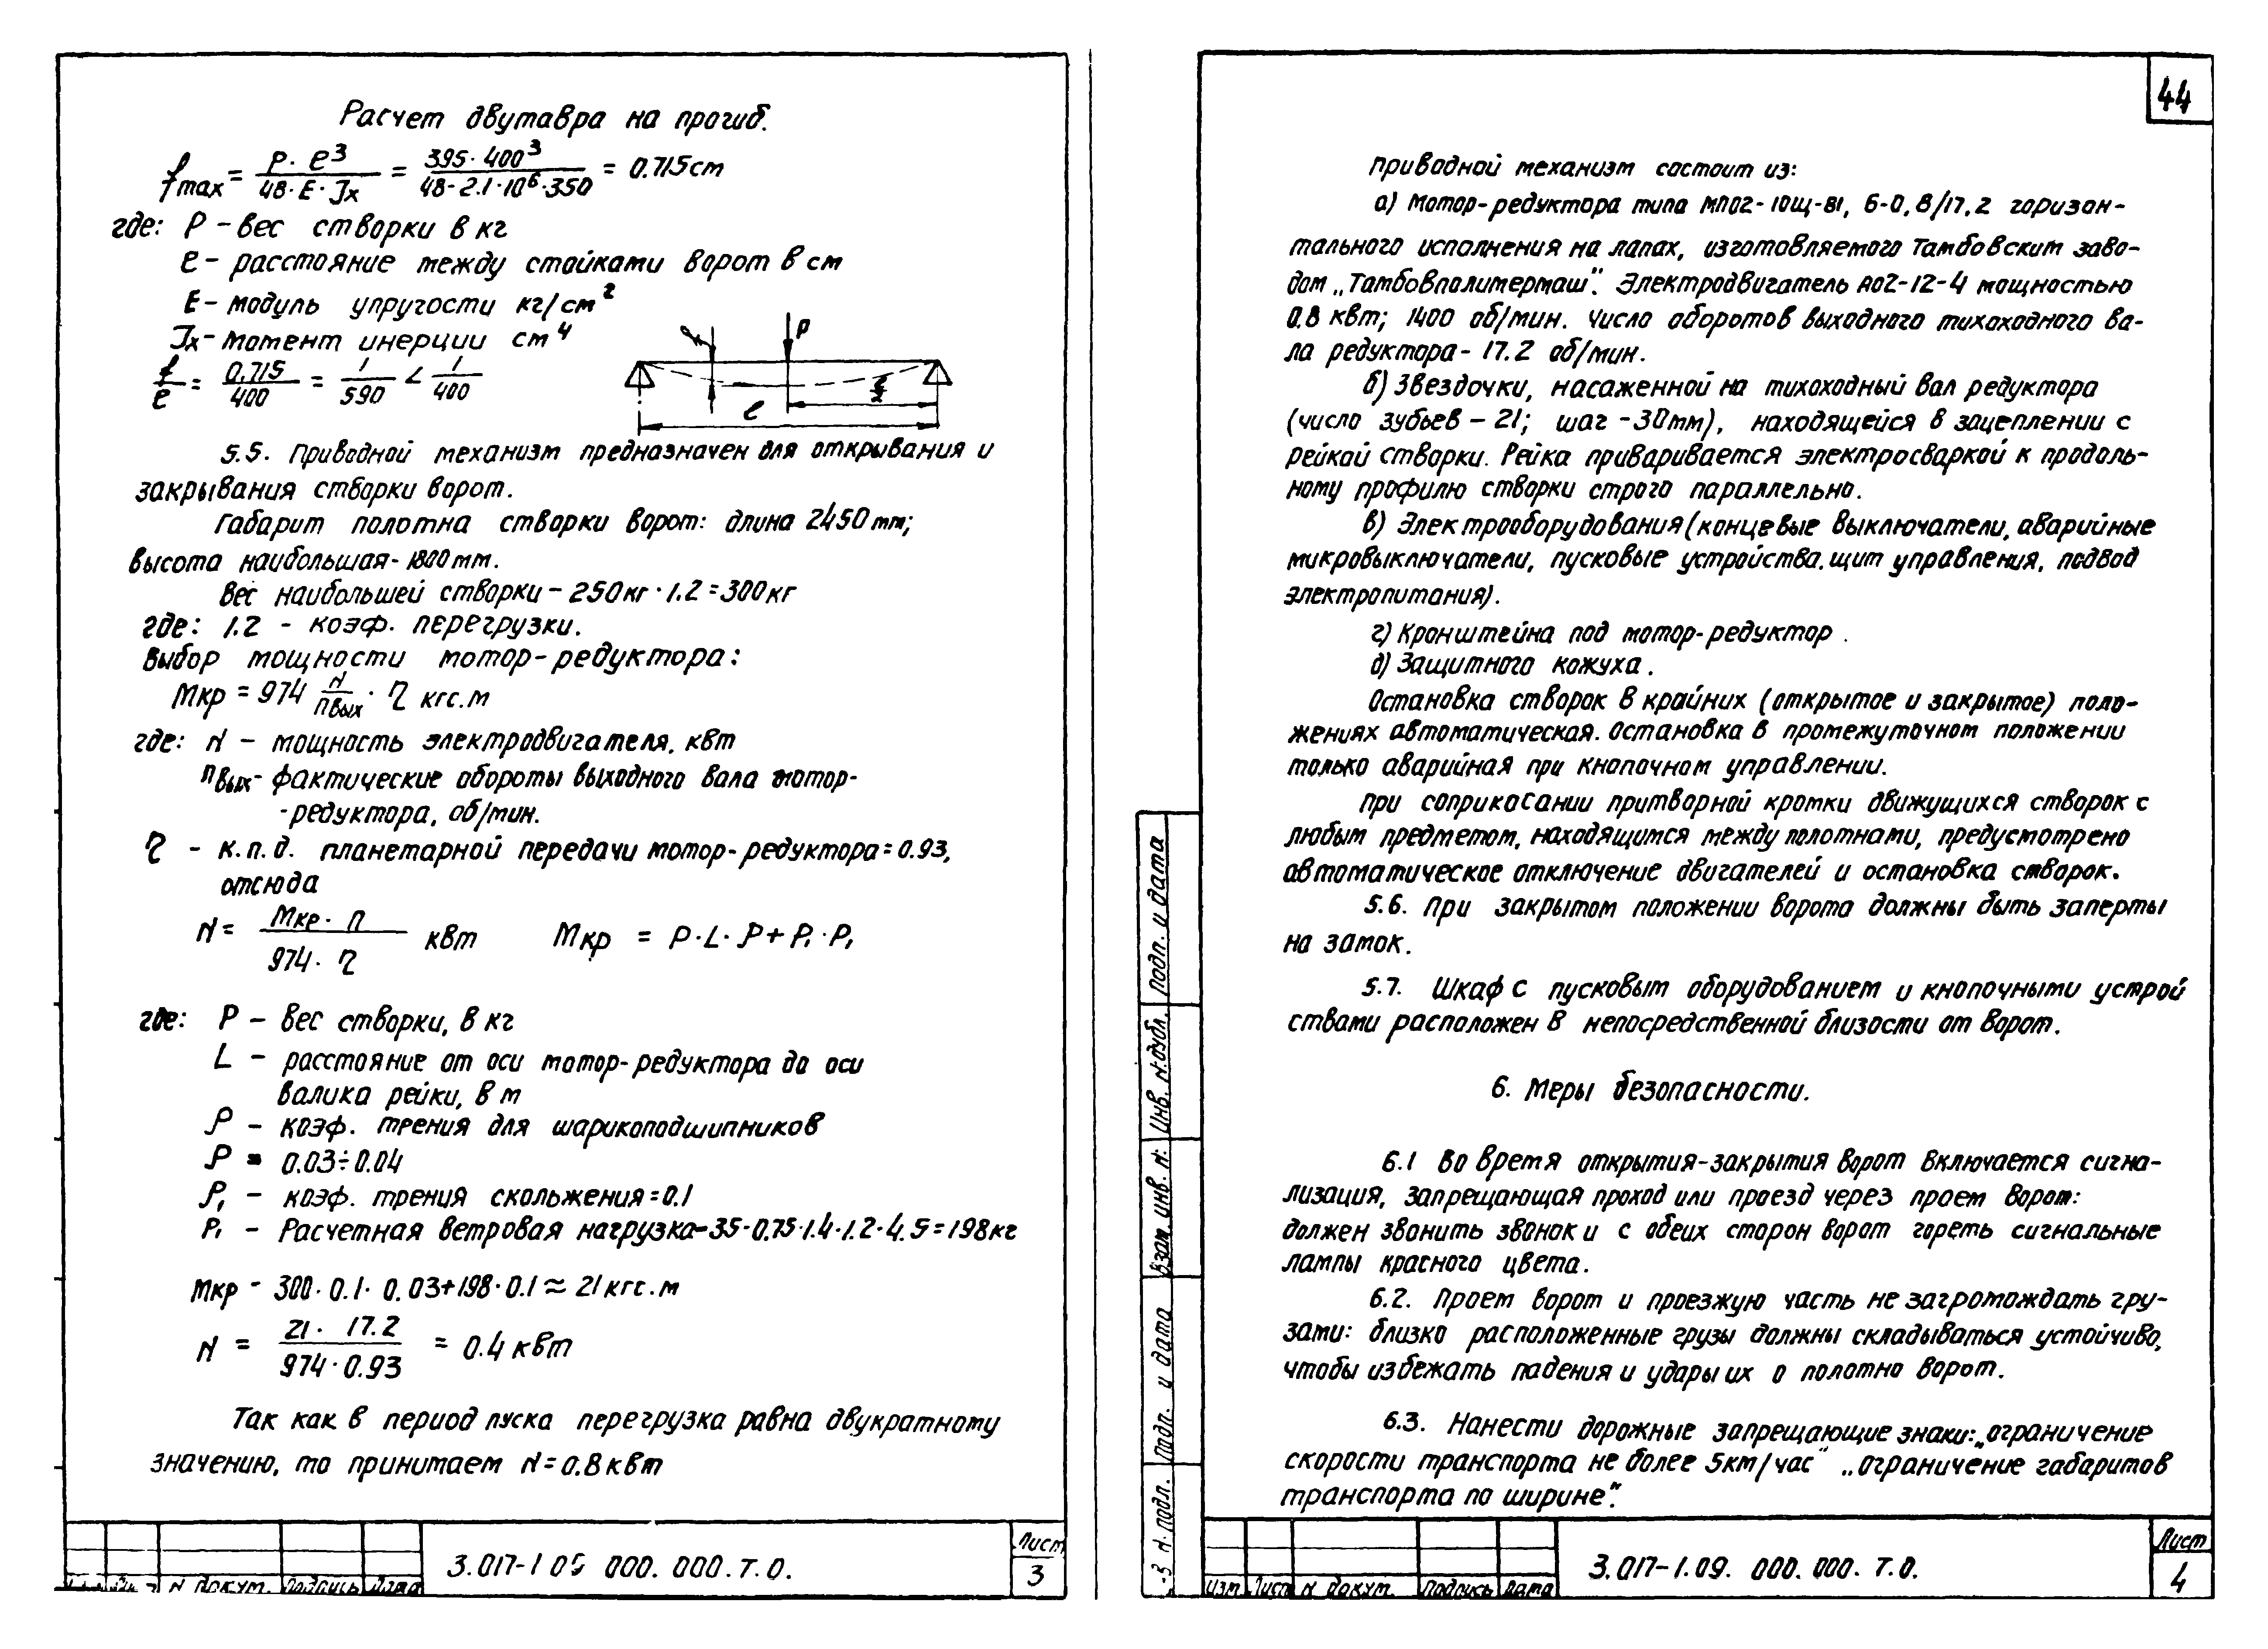 Расчет двутавра на прогиб.
f max = P · ℓ³ / 48 · E · Jx = 395 · 400³ / 48 · 2.1 · 10⁶ · 350 = 0.715 см
где: P – вес створки в кг
ℓ – расстояние между стойками ворот в см
E – модуль упругости кг/см²
Jx – момент инерции см⁴
f/ℓ = 0.715/400 = 1/590 < 1/400
f P
ℓ ℓ/2
5.5. Приводной механизм предназначен для открывания и
закрывания створки ворот.
Габарит полотна створки ворот: длина 2450 мм;
высота наибольшая - 1800 мм.
Вес наибольшей створки – 250 кг · 1.2 = 300 кг
где: 1.2 - коэф. перегрузки.
Выбор мощности мотор-редуктора:
Мкр = 974 N/nвых · η кгс.м
где: N – мощность электродвигателя, квт
nвых - фактические обороты выходного вала мотор-
-редуктора, об/мин.
η - к.п.д. планетарной передачи мотор-редуктора = 0.93,
отсюда
N = Мкр · n / 974 · η квт Мкр = P · L · ρ + P₁ · ρ₁
где: P – вес створки, в кг
L – расстояние от оси мотор-редуктора до оси
валика рейки, в м
ρ – коэф. трения для шарикоподшипников
ρ = 0.03÷0.04
ρ₁ – коэф. трения скольжения = 0.1
P₁ – Расчетная ветровая нагрузка – 35 · 0.75 · 1.4 · 1.2 · 4.5 = 198 кг
Мкр - 300 · 0.1 · 0.03 + 198 · 0.1 ≈ 21 кгс.м
N = 21 · 17.2 / 974 · 0.93 = 0.4 квт
Так как в период пуска перегрузка равна двукратному
значению, то принимаем N = 0.8 квт
N докум. Подпись Дата
3.017-1 09 000. 000. Т. О.
Лист
3
44
Приводной механизм состоит из:
а) Мотор-редуктора типа МПО2-10Щ-В1, 6-0,8/17,2 горизон-
тального исполнения на лапах, изготовляемого Тамбовским заво-
дом „Тамбовполимермаш". Электродвигатель АО2-12-4 мощностью
0.8 квт; 1400 об/мин. Число оборотов выходного тихоходного ва-
ла редуктора - 17.2 об/мин.
б) Звездочки, насаженной на тихоходный вал редуктора
(число зубьев – 21; шаг - 30мм), находящейся в зацеплении с
рейкой створки. Рейка приваривается электросваркой к продоль-
ному профилю створки строго параллельно.
в) Электрооборудования (концевые выключатели, аварийные
микровыключатели, пусковые устройства, щит управления, подвод
электропитания).
г) Кронштейна под мотор-редуктор.
д) Защитного кожуха.
Остановка створок в крайних (открытое и закрытое) поло-
жениях автоматическая. Остановка в промежуточном положении
только аварийная при кнопочном управлении.
При соприкасании притворной кромки движущихся створок с
любым предметом, находящимся между полотнами, предусмотрено
автоматическое отключение двигателей и остановка створок.
5.6. При закрытом положении ворота должны быть заперты
на замок.
5.7. Шкаф с пусковым оборудованием и кнопочными устрой
ствами расположен в непосредственной близости от ворот.
6. Меры безопасности.
6.1 Во время открытия-закрытия ворот включается сигна-
лизация, запрещающая проход или проезд через проем ворот:
должен звонить звонок и с обеих сторон ворот гореть сигнальные
лампы красного цвета.
6.2. Проем ворот и проезжую часть не загромождать гру-
зами: близко расположенные грузы должны складываться устойчиво,
чтобы избежать падения и удары их о полотно ворот.
6.3. Нанести дорожные запрещающие знаки: „ограничение
скорости транспорта не более 5км/час" „ограничение габаритов
транспорта по ширине".
Подп. и дата
Инв. N дубл.
Взам. инв. N
Подп. и дата
N подл.
Изм Лист N докум. Подпись Дата
3.017-1.09. 000. 000. Т. О.
Лист
4